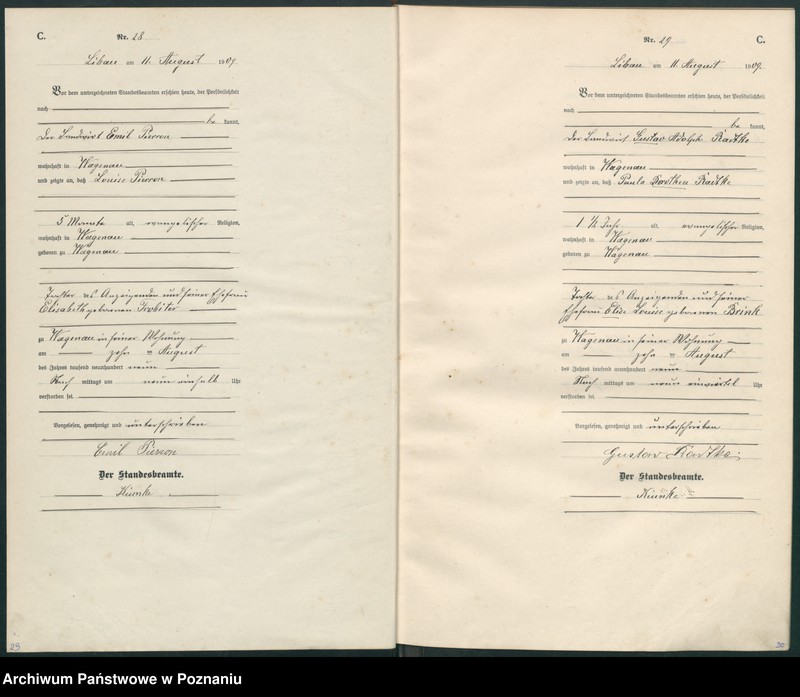 C.
Nr. 28
Libau am 11. August 1909.
Vor dem unterzeichneten Standesbeamten erschien heute, der Persönlichkeit
nach
be kannt,
Der Landwirt Emil Pierron
wohnhaft in Wagenau
und zeigte an, daß Louise Pierron
5 Monate alt, evangelischer Religion,
wohnhaft in Wagenau
geboren zu Wagenau
Tochter des Anzeigenden und seiner Ehefrau
Elisabeth geborenen
zu Wagenau in seiner Wohnung
am zehn ten August
des Jahres tausend neunhundert neun
Nach mittags um neun einhalb Uhr
verstorben sei.
Vorgelesen, genehmigt und unterschrieben
Emil Pierron
Der Standesbeamte.
Künke
29
Nr. 29
C.
Libau am 11. August 1909.
Vor dem unterzeichneten Standesbeamten erschien heute, der Persönlichkeit
nach
be kannt,
Der Landwirt Gustav Adolph Radtke
wohnhaft in Wagenau
und zeigte an, daß Paula Dorothea Radtke
1 ½ Jahr alt, evangelischer Religion,
wohnhaft in Wagenau
geboren zu Wagenau
Tochter des Anzeigenden und seiner
Ehefrau Elise Louise geborenen Brink
zu Wagenau in seiner Wohnung
am zehn ten August
des Jahres tausend neunhundert neun
Nach mittags um neun einviertel Uhr
verstorben sei.
Vorgelesen, genehmigt und unterschrieben
Gustav Radtke
Der Standesbeamte.
Künke
30
Archiwum Państwowe w Poznaniu